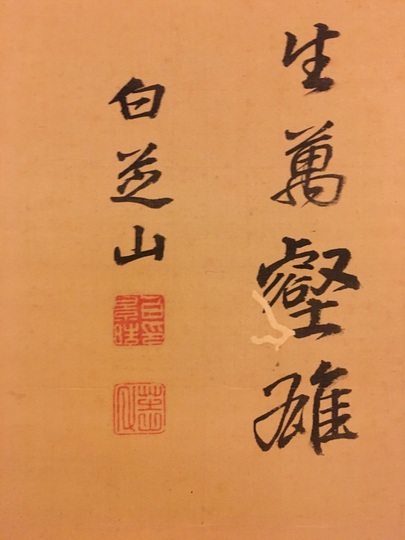 生萬壑雄
白芝山